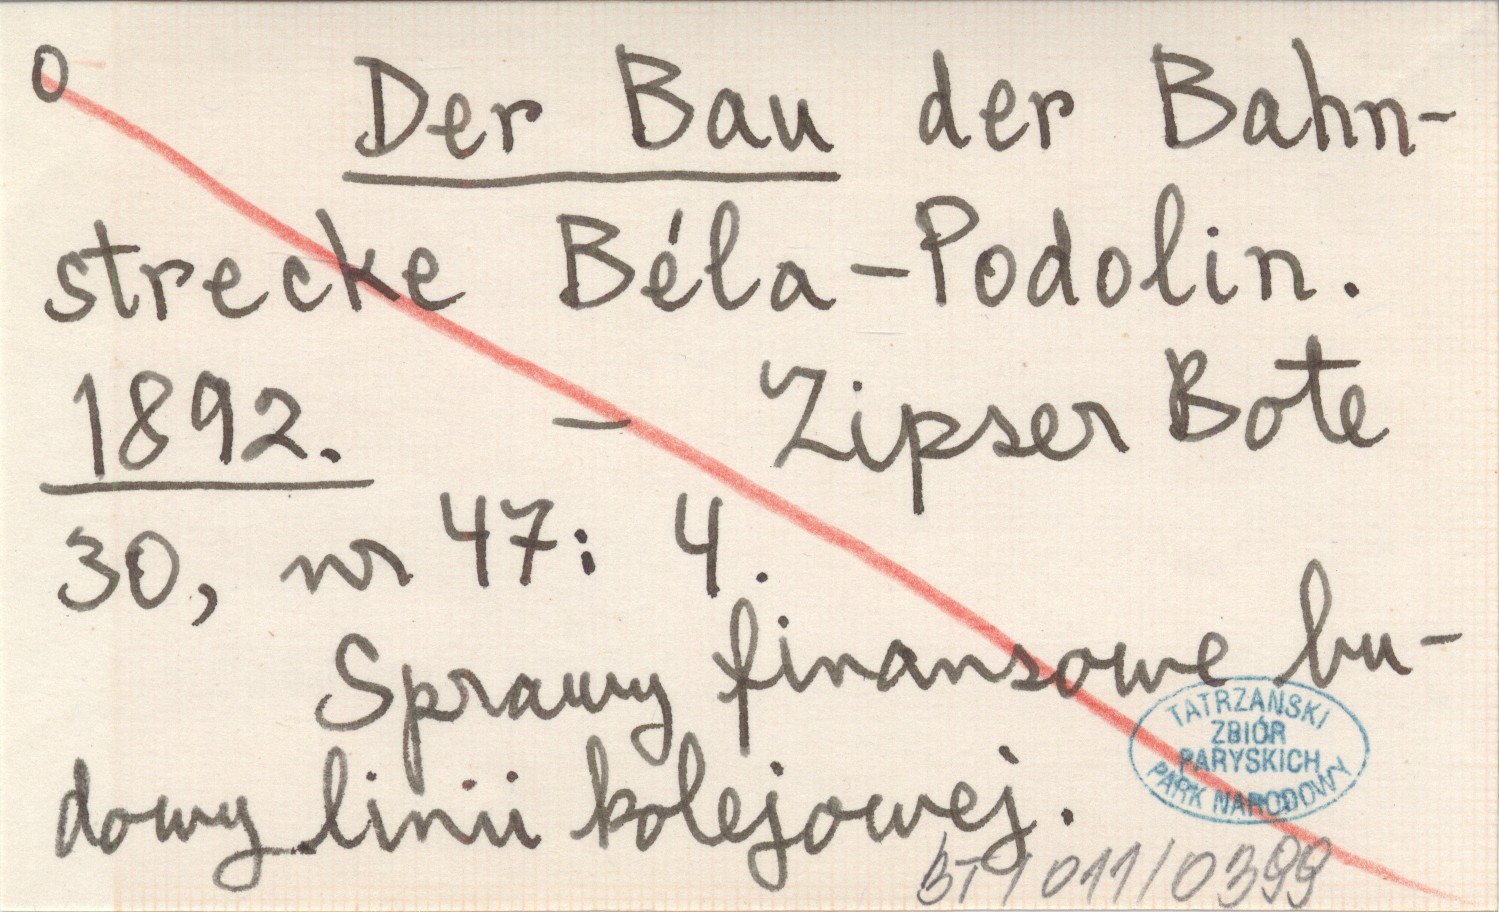 O Der Bau der Bahn-
strecke Béla-Podolin.
1892. - Zipser Bote
30, nr 47: 4.
Sprawy finansowe bu-
dowy linii kolejowej.
TATRZAŃSKI
ZBIÓR
PARYSKICH
PARK NARODOWY
BT / 011 / 0399